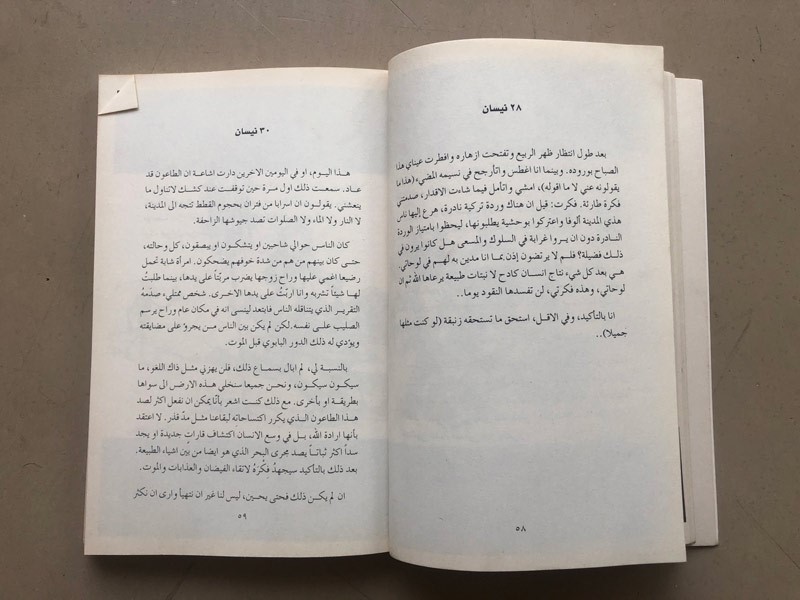 ٢٨ نيسان
بعد طول انتظار ظهر الربيع وتفتحت ازهاره وافطرت عيناي هذا
الصباح بوروده. وبينما انا اغطس وأتأرجح في نسيمه المضيء (هذا ما
يقولونه عني لا ما اقوله)، امشي وأتأمل فيما شاءت الاقدار، صدمتني
فكرة طارئة. فكرت: قيل ان هناك وردة تركية نادرة، هرع إليها ناس
هذي المدينة ألوفا واعتركوا بوحشية يطلبونها، ليحظوا بامتياز الوردة
النادرة دون ان يروا غرابة في السلوك والمسعى هل كانوا يرون في
ذلك فضيلة؟ فلم لا يرتضون إذن بما انا مدين به لهم في لوحاتي.
هي بعد كل شيء نتاج انسان كادح لا نبتات طبيعة يرعاها الله ثم ان
لوحاتي، وهذه فكرتي، لن تفسدها النقود يوما..
انا بالتأكيد، وفي الاقل، استحق ما تستحقه زنبقة (لو كنت مثلها
جميلا)..
٥٨
٣٠ نيسان
هذا اليوم، او في اليومين الاخرين دارت اشاعة ان الطاعون قد
عاد. سمعت ذلك اول مرة حين توقفت عند كشك لاتناول ما
ينعشني. يقولون ان اسرابا من فتران بحجوم القطط تتجه الى المدينة،
لا النار ولا الماء ولا الصلوات تصد جيوشها الزاحفة.
كان الناس حوالي شاحبين او يتشكون او يبصقون، كل وحالته،
حتى كان بينهم من هم من شدة خوفهم يضحكون. امرأة شابة تحمل
رضيعا اغمي عليها وراح زوجها يضرب مربّتاً على يدها، بينما طلبتُ
لها شيئاً تشربه وانا اربّتُ على يدها الاخرى. شخص ممتلىء صدَمهُ
التقرير الذي يتناقله الناس فابتعد لينسى انه في مكان عام وراح يرسم
الصليب على نفسه. لكن لم يكن بين الناس من يجرؤ على مضايقته
ويؤدي له ذلك الدور البابوي قبل الموت.
بالنسبة لي، لم ابال بسماع ذلك، فلن يهزني مثل ذاك اللغو، ما
سيكون سيكون، ونحن جميعا سنخلي هذه الارض الى سواها
بطريقة او بأخرى. مع ذلك كنت اشعر بأنّا يمكن ان نفعل اكثر لصد
هذا الطاعون الذي يكرر اكتساحاته لبقاعنا مثل مدّ قذر. لا اعتقد
بأنها ارادة الله، بل في وسع الانسان اكتشاف قاراتٍ جديدة او يجد
سداً اكثر ثباتاً يصد مجرى البحر الذي هو ايضا من بين اشياء الطبيعة.
بعد ذلك بالتأكيد سيجهدُ فكْرَهُ لاتقاء الفيضان والعذابات والموت.
ان لم يكن ذلك فحتى يحين، ليس لنا غير ان نتهيأ وارى ان نكثر
٥٩